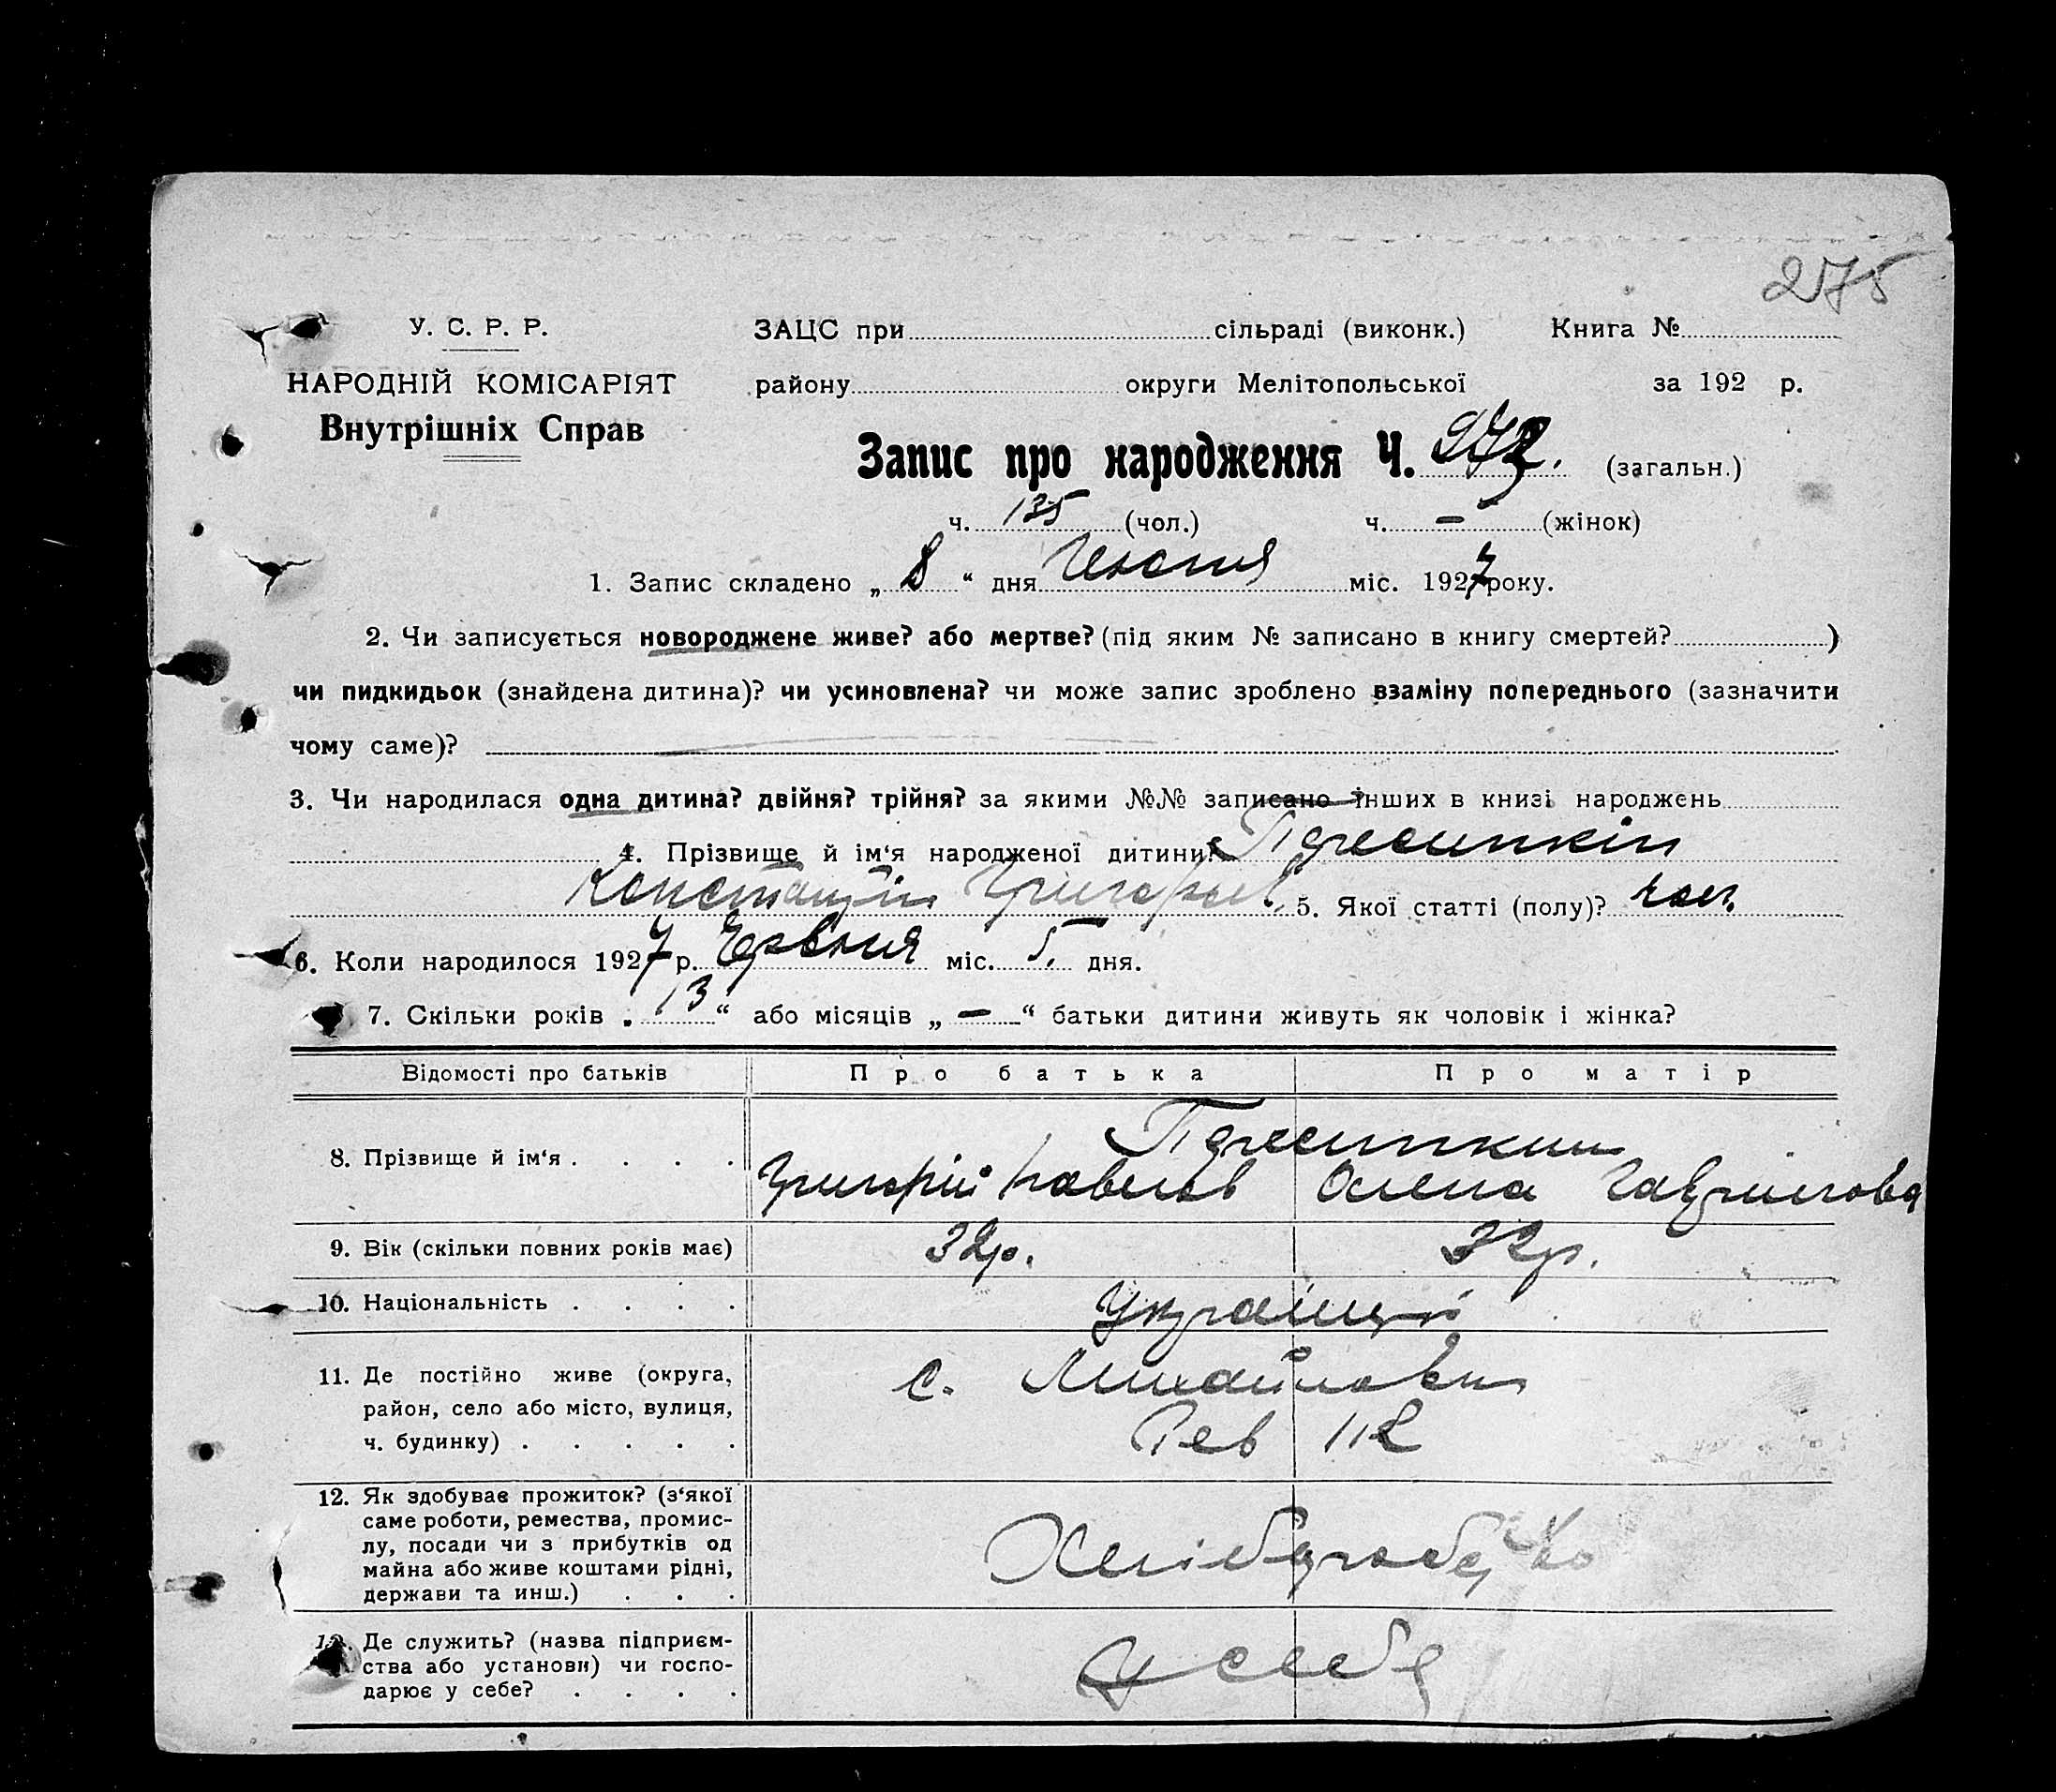 275
У. С. Р. Р. ЗАЦС при сільраді (виконк.) Книга №
НАРОДНІЙ КОМІСАРІЯТ району округи Мелітопольської за 192 р.
Внутрішніх Справ
Запис про народження Ч. 272. (загальн.)
ч. 135 (чол.) ч. – (жінок)
1. Запис складено „ 8 “ дня Июня міс. 1927 року.
2. Чи записується новороджене живе? або мертве? (під яким № записано в книгу смертей? )
чи пидкидьок (знайдена дитина)? чи усиновлена? чи може запис зроблено взаміну попереднього (зазначити
чому саме)?
3. Чи народилася одна дитина? двійня? трійня? за якими №№ записано інших в книзі народжень
4. Прізвище й ім‘я народженої дитини?
Константін Григорьев 5. Якої статті (полу)? чол.
6. Коли народилося 1927 р. Червня міс. 5. дня.
7. Скільки років „ 13 “ або місяців „ – “ батьки дитини живуть як чоловік і жінка?
Відомості про батьків Про батька Про матір
8. Прізвище й ім‘я . . . .
Григорій Павелов Олена Гаврилова
9. Вік (скільки повних років має) 32р. 32р.
10. Національність . . . . Українці
11. Де постійно живе (округа, с. Михайловки
район, село або місто, вулиця, Рев 112
ч. будинку) . . . . .
12. Як здобуває прожиток? (з‘якої
саме роботи, ремества, промис-
лу, посади чи з прибутків од
майна або живе коштами рідні,
держави та инш.) . . .
13. Де служить? (назва підприєм-
ства або установи) чи госпо- у себе
дарює у себе? . . . .